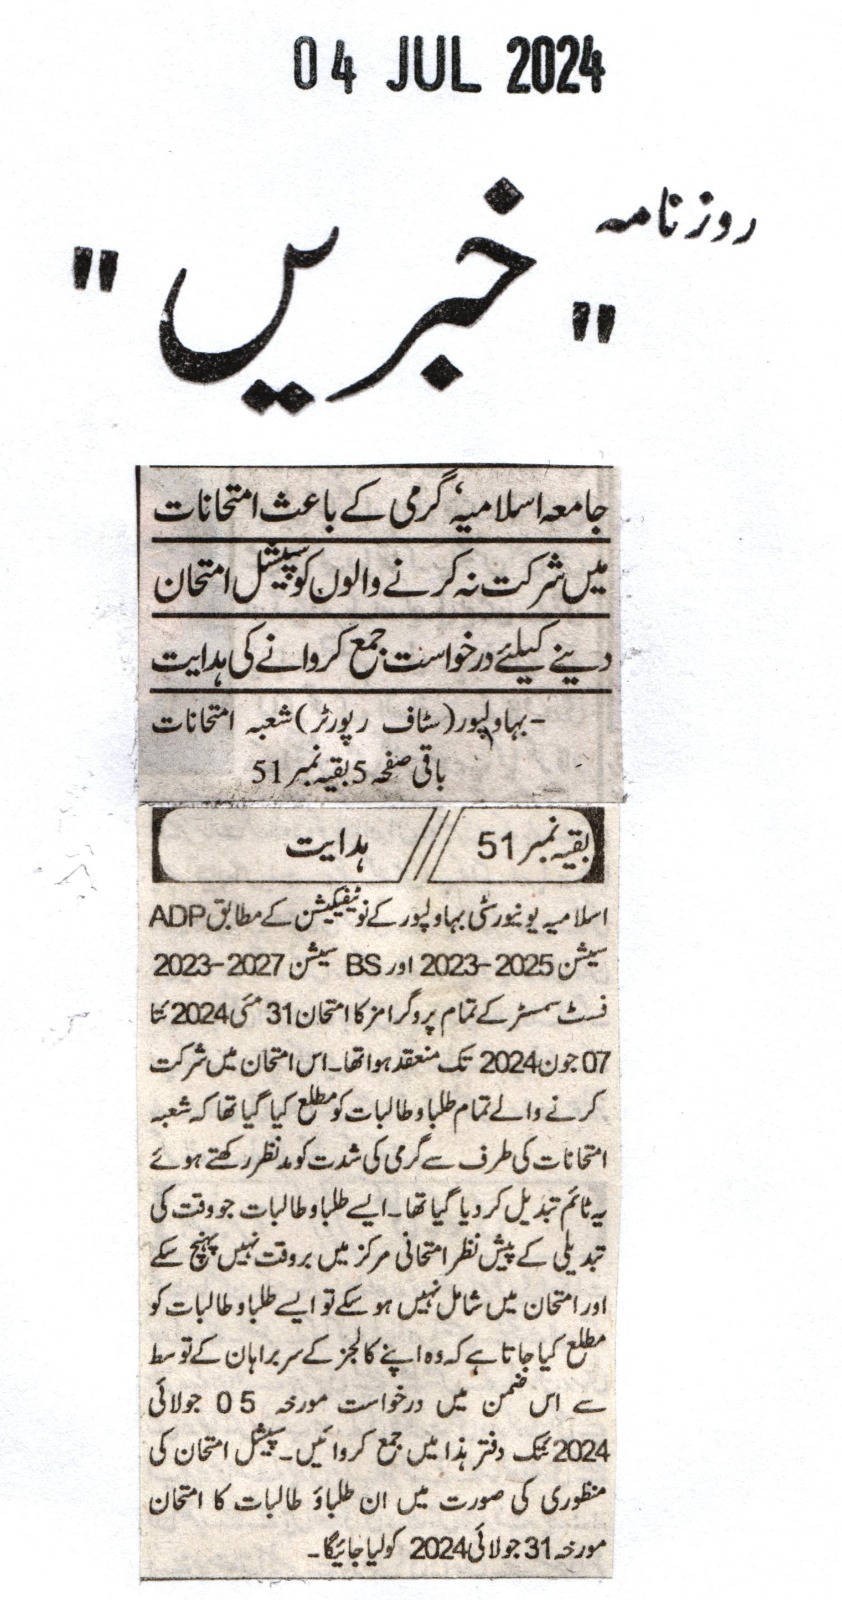 04 JUL 2024
روزنامہ
"خبریں"
جامعہ اسلامیہ، گرمی کے باعث امتحانات
میں شرکت نہ کرنے والوں کو سپیشل امتحان
دینے کیلئے درخواست جمع کروانے کی ہدایت
-بہاولپور (سٹاف رپورٹر) شعبہ امتحانات
باقی صفحہ 5 بقیہ نمبر 51
بقیہ نمبر 51 /// ہدایت
اسلامیہ یونیورسٹی بہاولپور کے نوٹیفکیشن کے مطابق ADP
سیشن 2025-2023 اور BS سیشن 2027-2023
فسٹ سمسٹر کے تمام پروگرامز کا امتحان 31 مئی 2024 تا
07 جون 2024 تک منعقد ہوا تھا۔ اس امتحان میں شرکت
کرنے والے تمام طلبا و طالبات کو مطلع کیا گیا تھا کہ شعبہ
امتحانات کی طرف سے گرمی کی شدت کو مدنظر رکھتے ہوئے
یہ ٹائم تبدیل کر دیا گیا تھا۔ ایسے طلبا و طالبات جو وقت کی
تبدیلی کے پیش نظر امتحانی مرکز میں بروقت نہیں پہنچ سکے
اور امتحان میں شامل نہیں ہو سکے تو ایسے طلبا و طالبات کو
مطلع کیا جاتا ہے کہ وہ اپنے کالجز کے سربراہان کے توسط
سے اس ضمن میں درخواست مورخہ 05 جولائی
2024 تک دفتر ہذا میں جمع کروائیں۔ سپیشل امتحان کی
منظوری کی صورت میں ان طلباؤ طالبات کا امتحان
مورخہ 31 جولائی 2024 کو لیا جائیگا۔